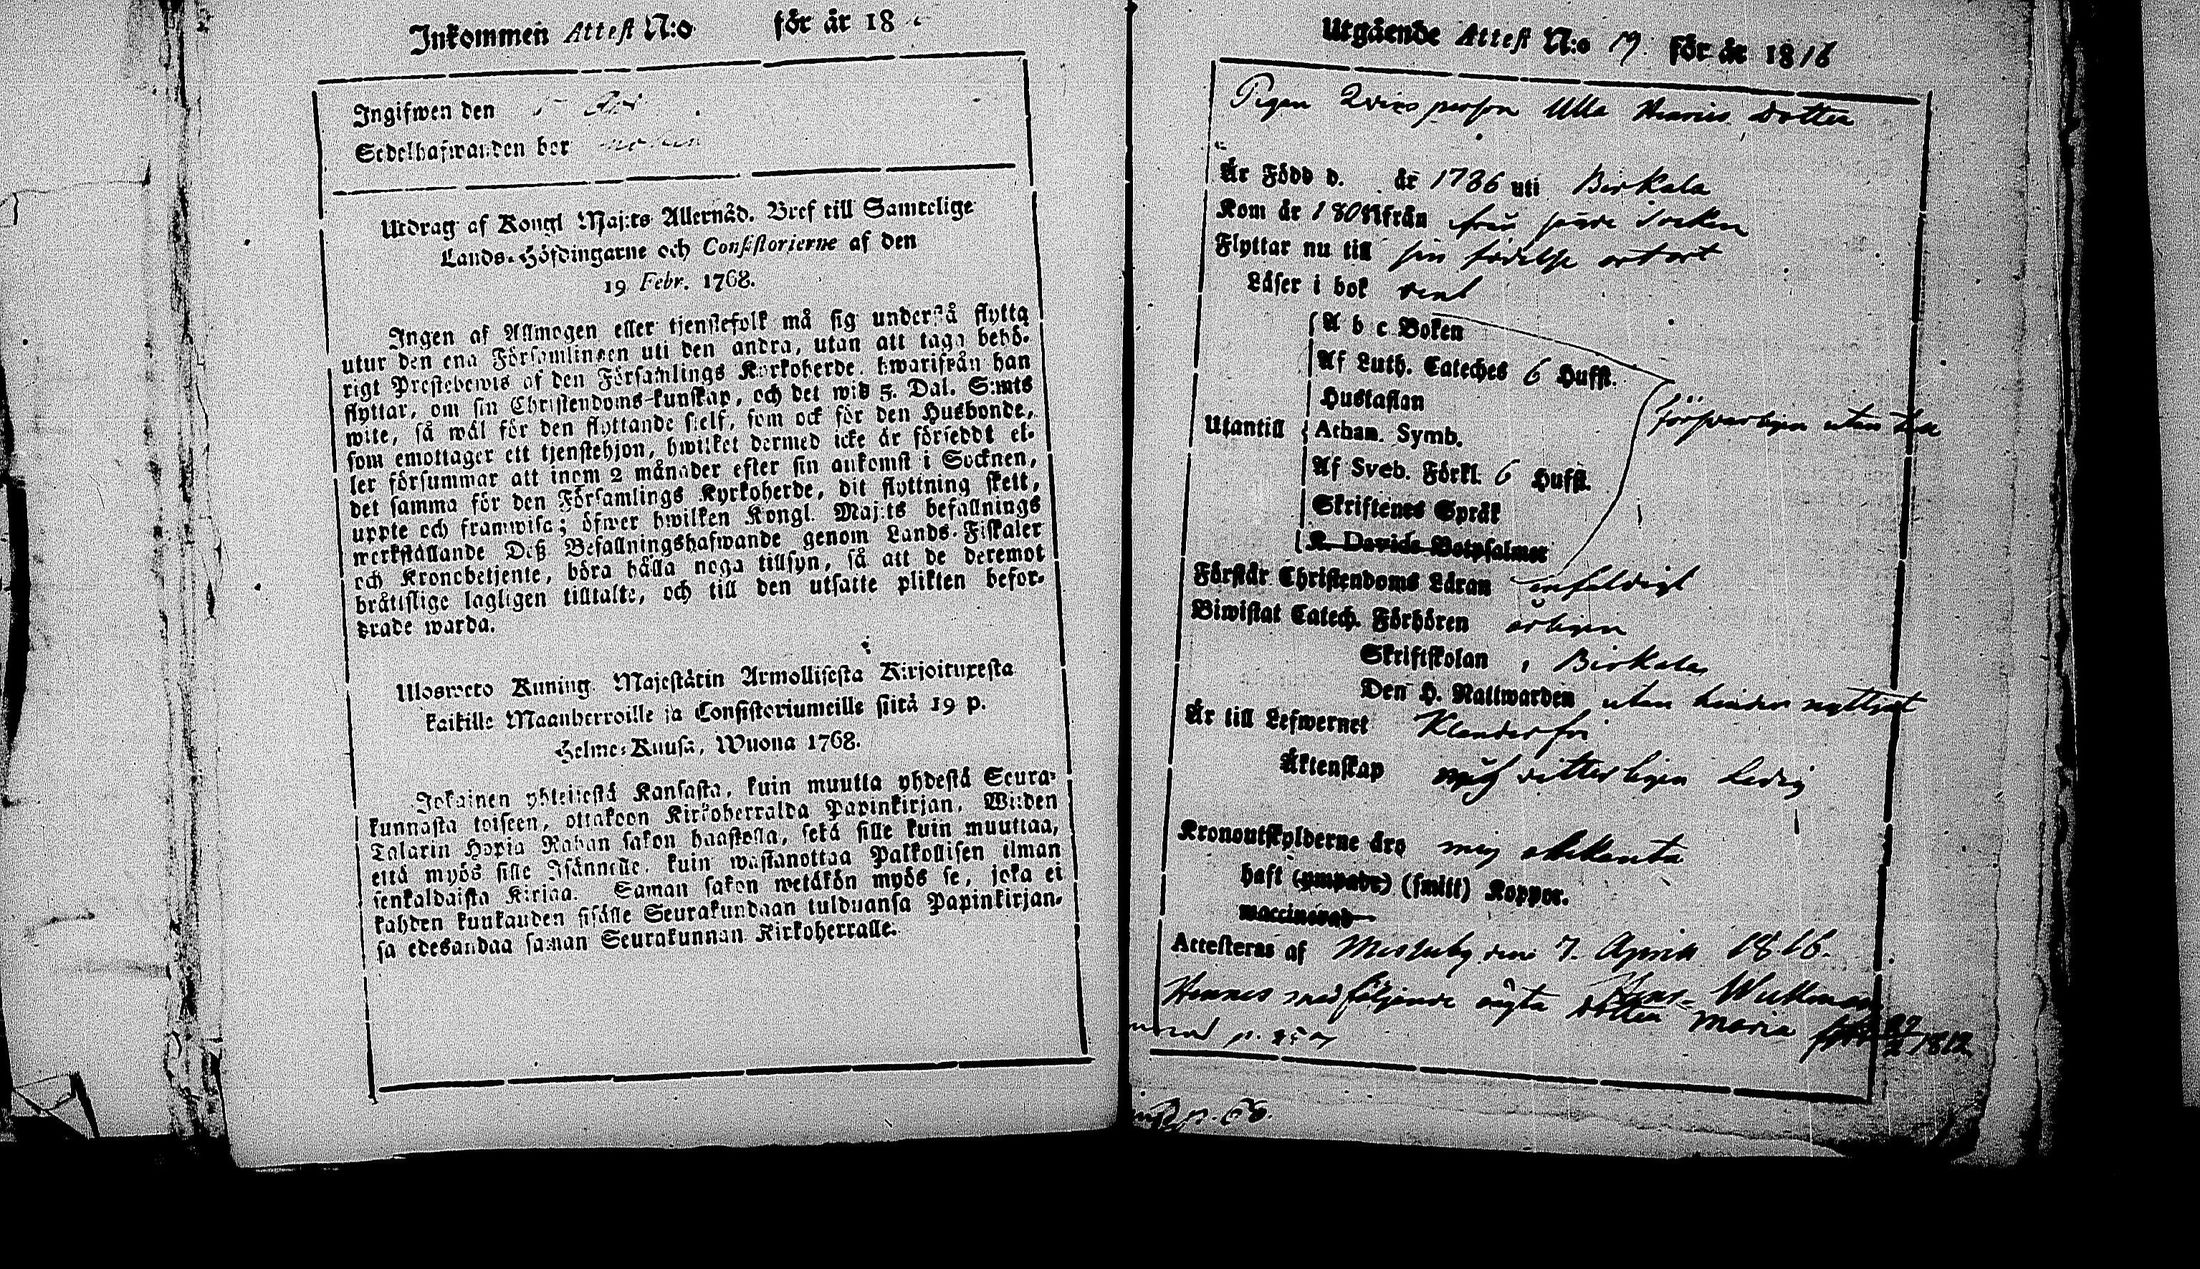 Inkommen Attest N:o för år 18
Ingifwen den
Sedelhafwanden bor
Utdrag af Kongl Maj:ts Allernåd. Bref till Samtelige
Lands-Höfdingarne och Consistorierne af den
19 Febr. 1768.
Ingen af Allmogen eller tjenstefolk må sig understå flytta
utur den ena Församlingen uti den andra, utan att taga behö-
rigt Prestebewis af den Församlings Kyrkoherde, hwarifrån han
flyttar, om sin Christendoms-kunskap, och det wid 5. Dal. S:mts
wite, så wäl för den flyttande sielf, som ock för den Husbonde,
som emottager ett tjenstehjon, hwilket dermed icke är förseddt el-
ler försummar att inom 2 månader efter sin ankomst i Socknen,
det samma för den Församlings Kyrkoherde, dit flyttning skett,
uppte och framwisa; öfwer hwilken Kongl. Maj:ts befallnings
werkställande Deß Befallningshafwande genom Lands-Fiskaler
och Kronobetjente, böra hålla noga tillsyn, så att de deremot
bråttslige lagligen tilltalte, och till den utsatte plikten befor-
drade warda.
Ulosweto Kuning. Majestätin Armollisesta Kirjoituxesta
kaikille Maanherroille ja Consistoriumeille siitä 19 p.
Helme-Kuusa, Wuona 1768.
Jokainen yhteisestä Kansasta, kuin muutta yhdestä Seura-
kunnasta toiseen, ottakoon Kirkoherralda Papinkirjan, Wiiden
Talarin Hopia Rahan sakon haastolla, sekä sille kuin muuttaa,
että myös sille Isännelle, kuin wastanottaa Palkollisen ilman
senkaldaista Kirjaa. Saman sakon wetäkön myös se, joka ei
kahden kuukauden sisälle Seurakundaan tulduansa Papinkirjan-
sa edesandaa saman Seurakunnan Kirkoherralle.
Utgående Attest N:o 19. för år 1816
Pigan Qvinsperson Ulla dotter
Är Född d. år 1786 uti Birkala
Kom år ifrån socken
Flyttar nu till sin födelse ort
Läser i bok rent
A b c Boken
Af Luth. Cateches 6 Hufst.
Hustaflan
Utantill Athan. Symb. försvarligen utan till
Af Sveb. Förkl. 6 Hufst.
Skriftenes Språk
K. Davids Botpsalmer
Förstår Christendoms Läran enfaldigt
Biwistat Catech. Förhören årligen
Skriftskolan i Birkala
Den H. Nattwarden utan hinder nyttjat
Är till Lefwernet Klanderfri
Äktenskap ledig
Kronoutskylderne äro mig obekanta
haft (ympade) (smitt) Koppor.
waccinerad
Attesteras af Messuby den 7. April 1816.
Hennes medföljande oägta dotter Maria född 1812